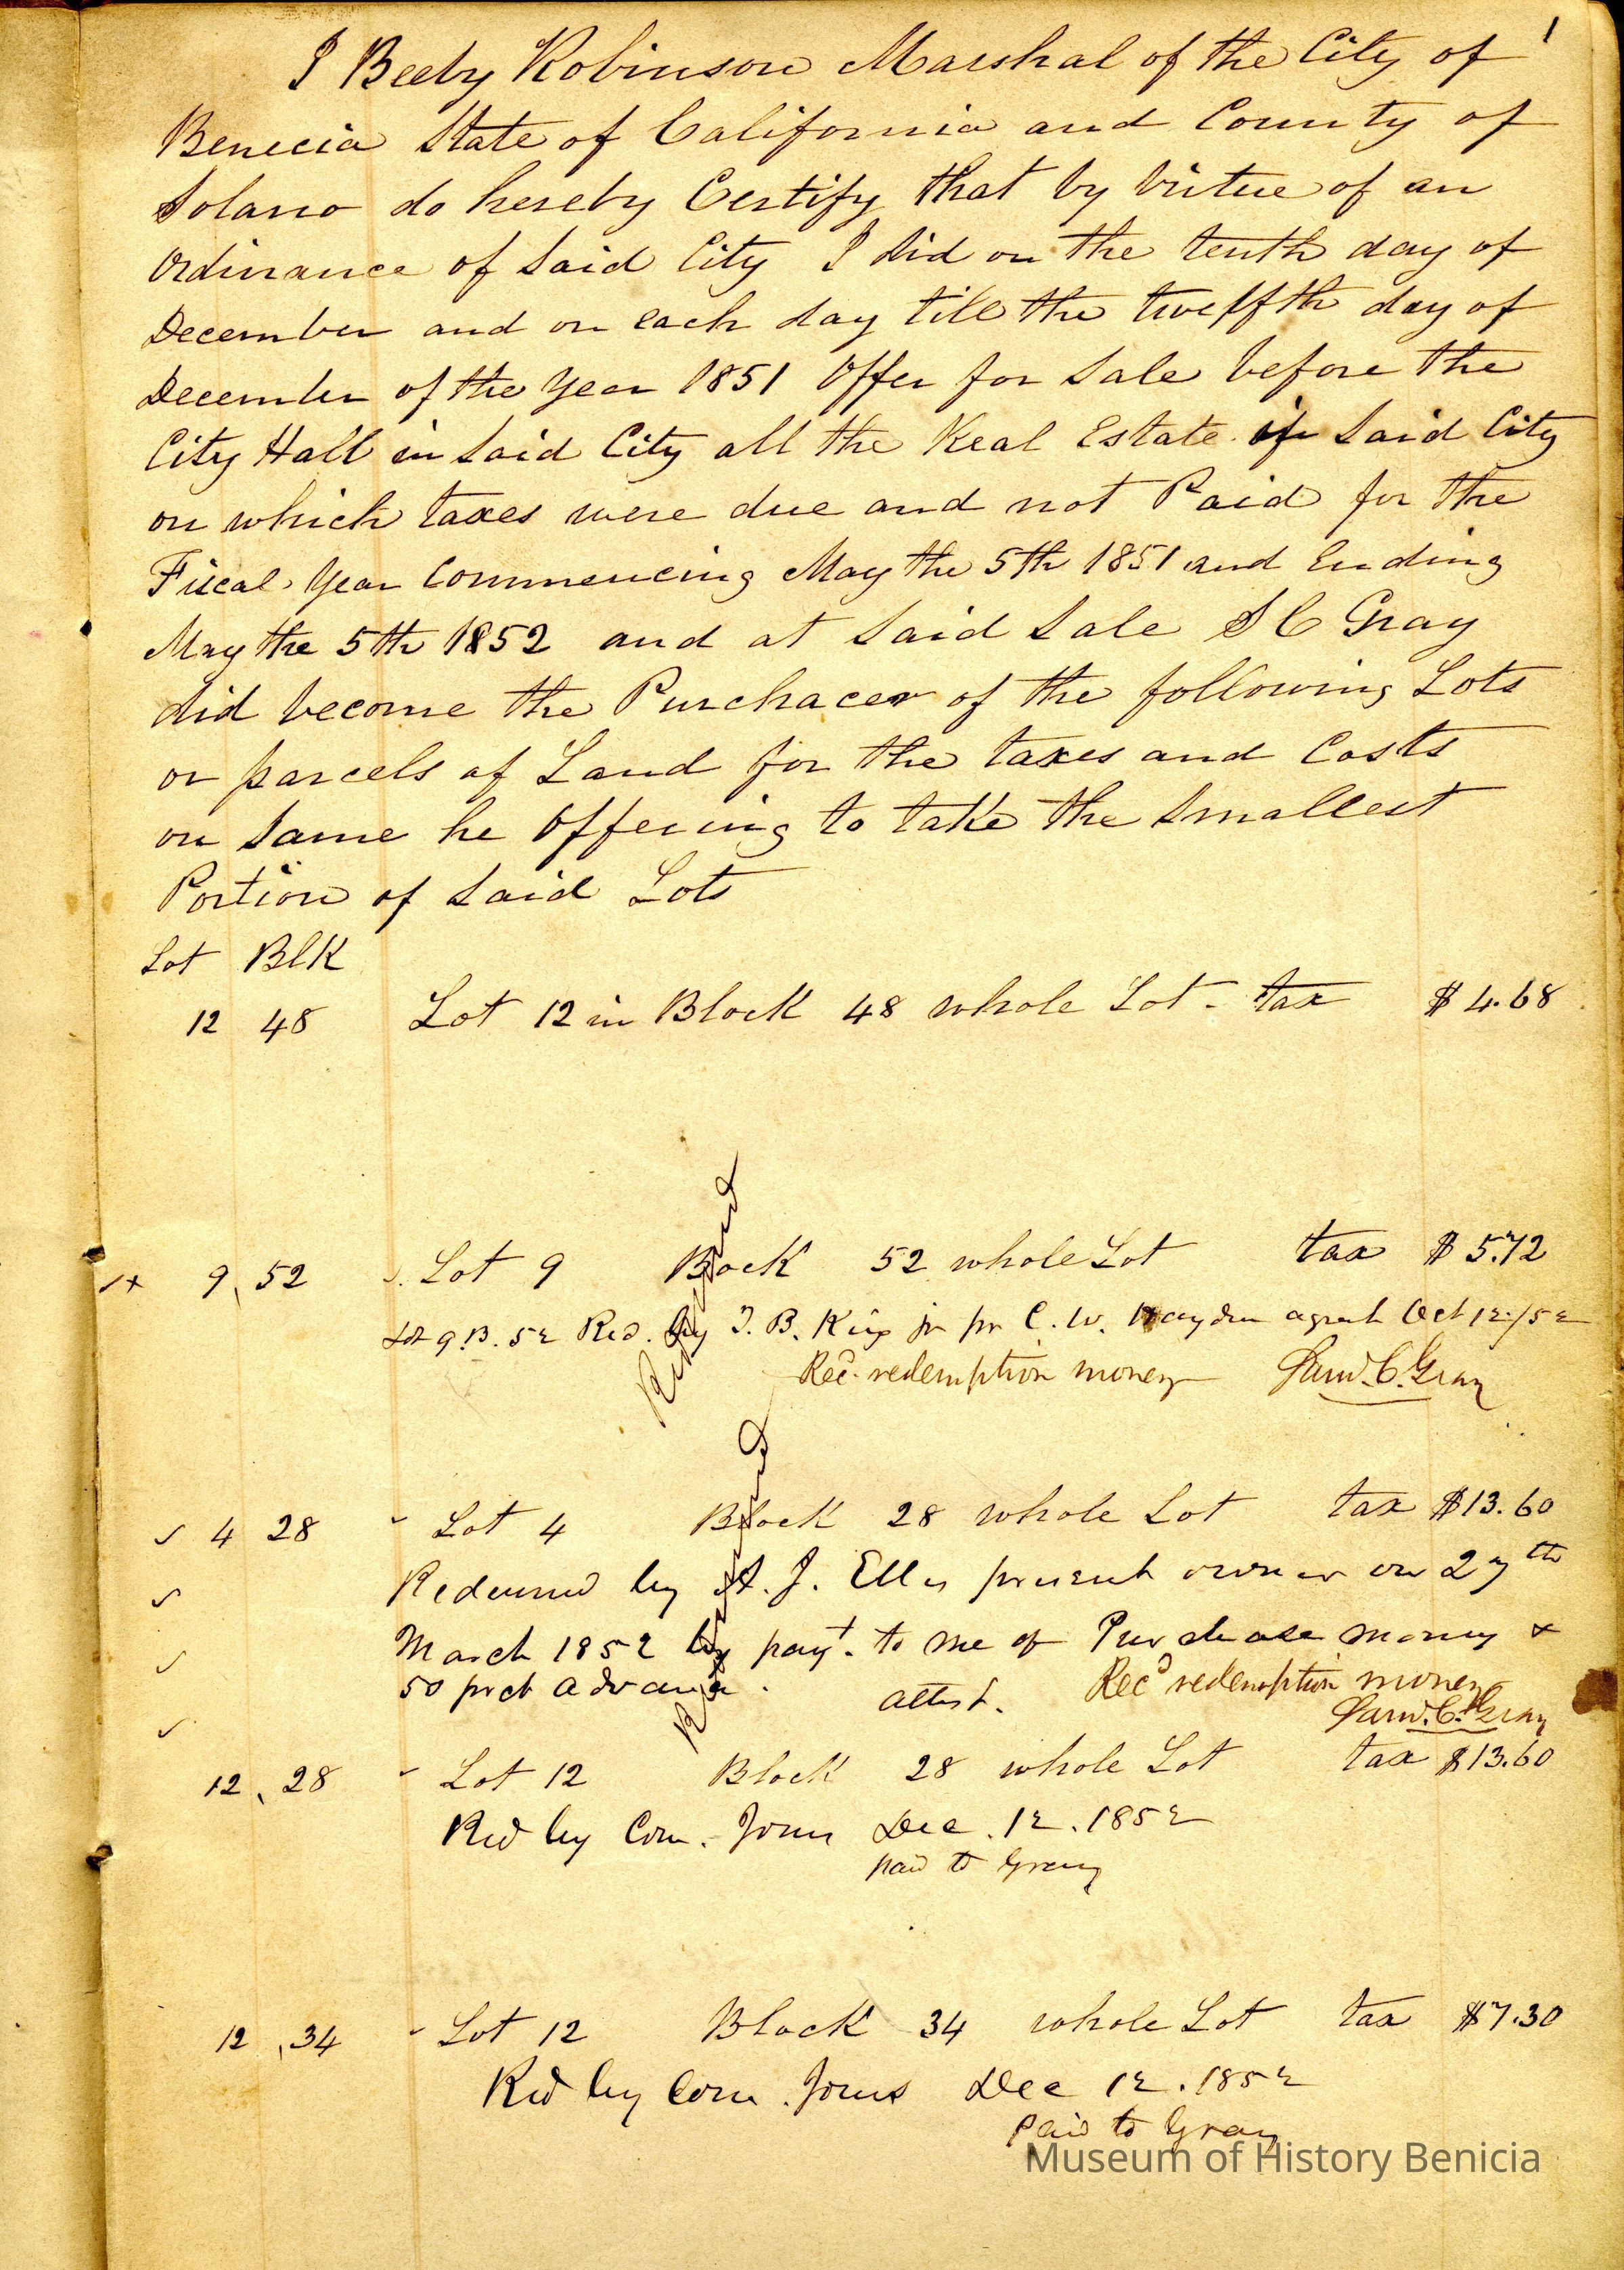 1
I Beeby Robinson Marshal of the City of
Benecia State of California and County of
Solano do hereby Certify that by Virtue of an
Ordinance of Said City I did on the tenth day of
December and on each day till the twelfth day of
December of the Year 1851 Offer for Sale before the
City Hall in Said City all the Real Estate in Said City
on which taxes were due and not Paid for the
Fiscal Year Commencing May the 5th 1851 and Ending
May the 5th 1852 and at Said Sale S C Gray
did become the Purchacer of the following Lots
or parcels of Land for the taxes and Costs
on Same he Offering to take the Smallest
Portion of Said Lots
Lot Blk
12 48 Lot 12 in Block 48 whole Lot - tax $ 4.68
9, 52 Lot 9 Bock 52 whole Lot tax $ 5.72
Lot 9 B. 52 Red. by T. B. King jr pr C. W. Hayden agent Oct 12/52
Recd. redemption money Saml. C. Gray
Redeemed
4 28 Lot 4 Block 28 whole Lot tax $13.60
Redeemed by A. J. Ellis present owner on 27th
March 1852 by payt. to me of Purchase money &
50 prct advance. attest. Recd redemption money
Saml. C. Gray
Redeemed
12, 28 Lot 12 Block 28 whole Lot tax $13.60
Red by Corn. Jones Dec. 12. 1852
paid to Gray
12, 34 Lot 12 Block 34 whole Lot tax $7.30
Red by Corn. Jones Dec 12. 1852
Paid to Gray
Museum of History Benicia